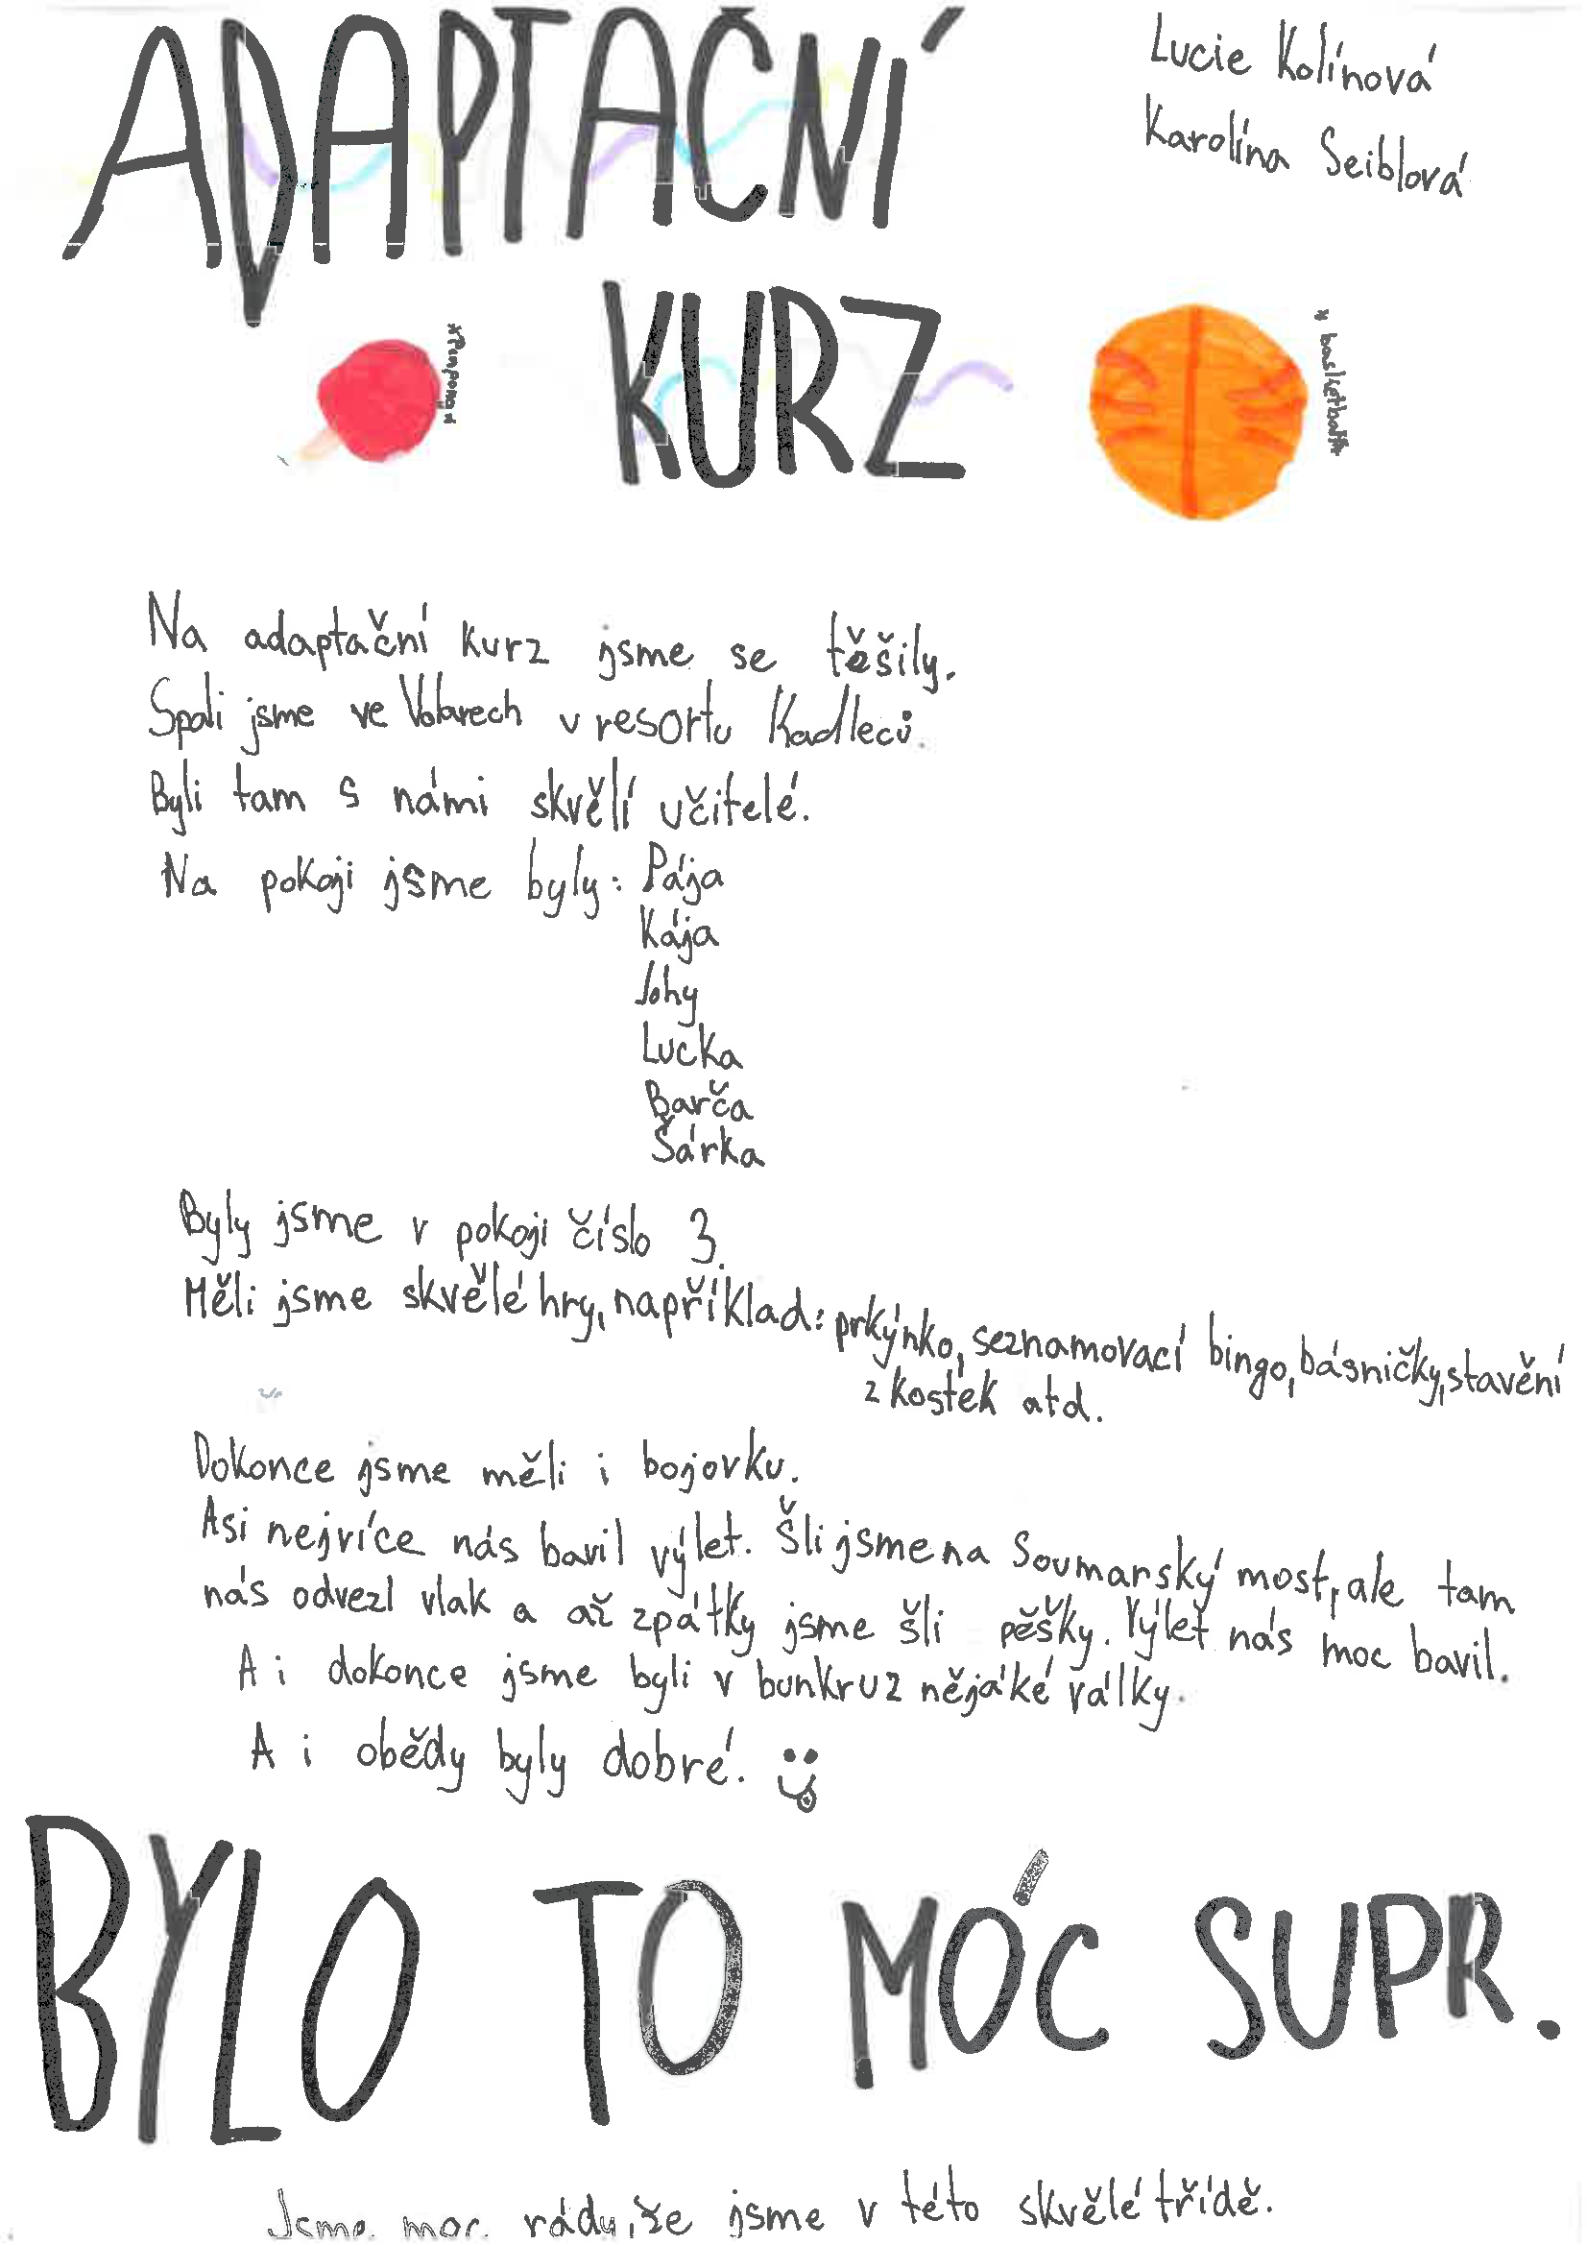 ADAPTAČNÍ
Lucie Kolínová
Karolína Seiblová
KURZ
*Pinpong*
*basketball*
Na adaptační kurz jsme se těšily.
Spali jsme ve Volarech v resortu Kadleců.
Byli tam s námi skvělí učitelé.
Na pokoji jsme byly: Pája
Kája
Johy
Lucka
Barča
Šárka
Byly jsme v pokoji číslo 3.
Měli jsme skvělé hry, například: prkýnko, seznamovací bingo, básničky, stavění
z kostek atd.
Dokonce jsme měli i bojovku.
Asi nejvíce nás bavil výlet. Šli jsme na Soumarský most, ale tam
nás odvezl vlak a až zpátky jsme šli pěšky. Výlet nás moc bavil.
A i dokonce jsme byli v bunkru z nějáké války.
A i obědy byly dobré.
BYLO TO MÓC SUPR.
Jsme moc rády, že jsme v této skvělé třídě.